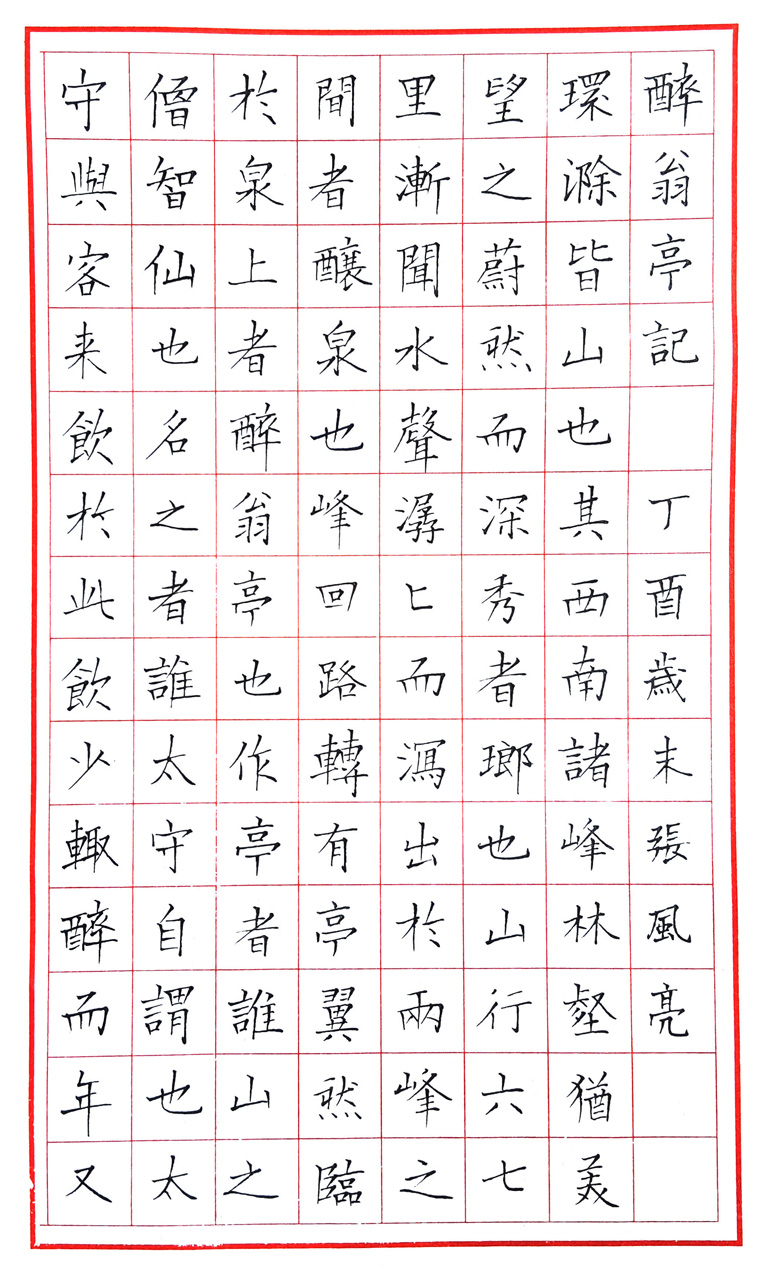 醉翁亭記 丁酉歲末張風亮
環滁皆山也其西南諸峰林壑猶美
望之蔚然而深秀者瑯也山行六七
里漸聞水聲潺匕而瀉出於兩峰之
間者釀泉也峰回路轉有亭翼然臨
於泉上者醉翁亭也作亭者誰山之
僧智仙也名之者誰太守自謂也太
守與客来飲於此飲少輒醉而年又